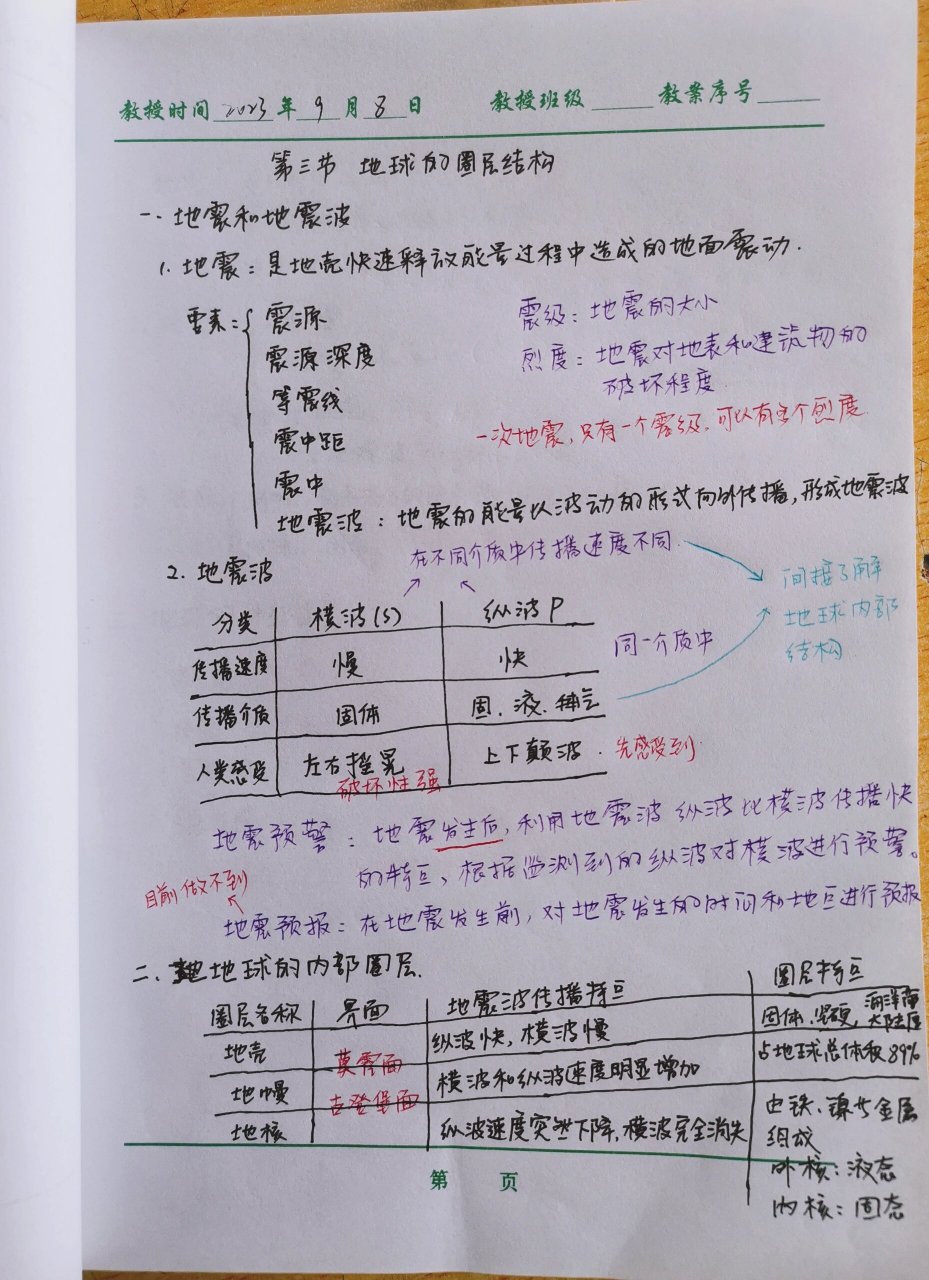 教授时间 2023 年 9 月 8 日 教授班级 教案序号
第三节 地球的圈层结构
一. 地震和地震波
1. 地震：是地壳快速释放能量过程中造成的地面震动.
要素：{ 震源
震源深度
等震线
震中距
震中
震级：地震的大小
烈度：地震对地表和建筑物的
破坏程度.
一次地震，只有一个震级，可以有多个烈度.
地震波：地震的能量以波动的形式向外传播，形成地震波
在不同介质中传播速度不同.
2. 地震波
间接了解
地球内部
结构
分类 横波(S) 纵波P
传播速度 慢 快 同一介质中
传播介质 固体 固、液、气
人类感受 左右摇晃 上下颠波. 先感受到.
破坏性强
地震预警：地震发生后，利用地震波 纵波比横波传播快
的特点，根据监测到的纵波对横波进行预警。
目前做不到
地震预报：在地震发生前，对地震发生的时间和地点进行预报
二. 地球的内部圈层.
圈层名称 界面 地震波传播特点 圈层特点
地壳 纵波快，横波慢 固体、坚硬，海洋薄
大陆厚
莫霍面
地幔 横波和纵波速度明显增加 占地球总体积89%
古登堡面
地核 纵波速度突然下降，横波完全消失 由铁、镍等金属
组成
外核：液态
内核：固态
第 页